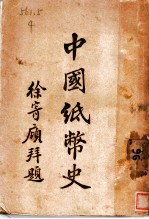 561.5
中國紙幣史
徐寄廎拜題